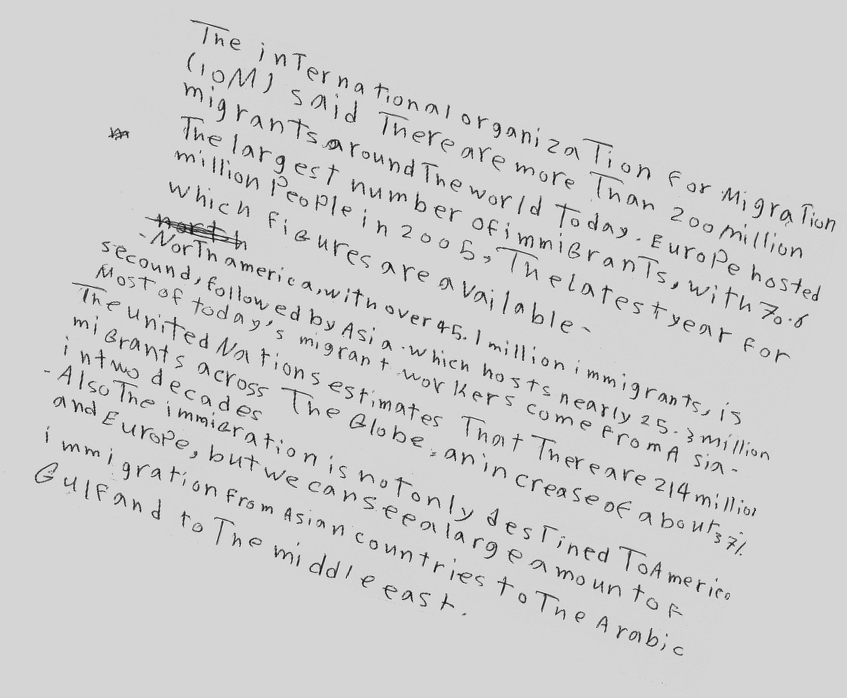 The inTernational organizaTion For MigraTion
(IOM) said There are more Than 200 million
migrants around The world Today. Europe hosted
The largest number of immiGranTs, with 70.6
million People in 2005, The latest year for
which fiGures are available-
-NorTh america, with over 45.1 million immigrants, is
secound, followed by Asia. which hosts nearly 25.3 million
Most of today's migrant workers come From Asia-
The united Nations estimates That There are 214 million
miGrants across The Globe, an increase of about 37%
in two decades
-Also The immiGration is not only desTined To America
and Europe, but we can see a large amount of
immigration From Asian countries to The Arabic
Gulf and to The middle east.